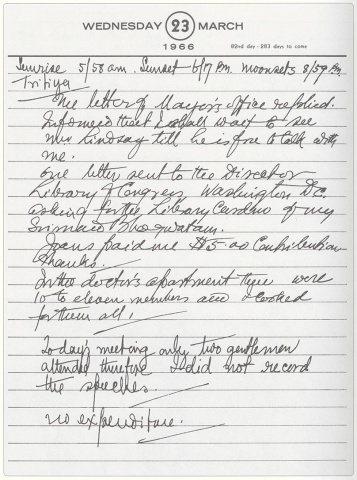 WEDNESDAY 23 MARCH
1966
82nd day - 283 days to come
Sunrise 5/58 am. Sunset 6/17 Pm. moonsets 8/59 Pm.
Tritiya
One letter of Mayor's office replied.
Informed that I shall wait to see
Mr Lindsay till he is free to talk with
me.
One letter sent to the Director
Library of Congress Washington D.C.
asking for the Library Card no of my
Srimad Bhagwatam.
paid me $5 as Contribution
Thanks.
In the doctor's apartment there were
10 to eleven members and I cooked
for them all.
Today's meeting only two gentlemen
attended therefore I did not record
the speeches.
no expenditure.